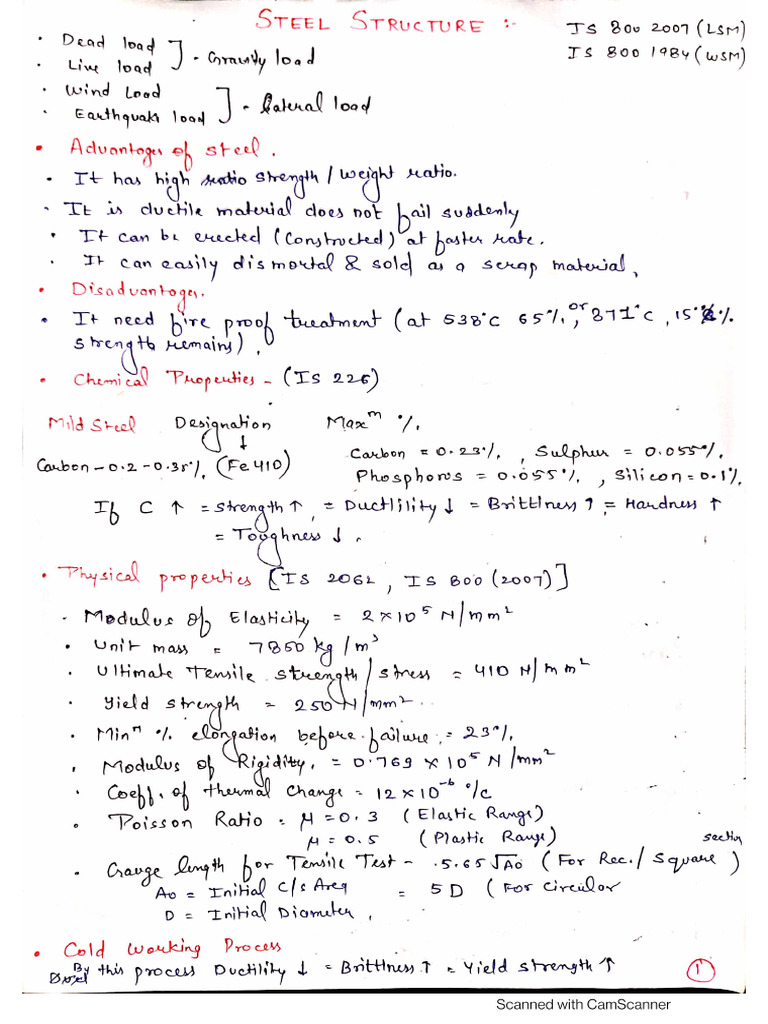 STEEL STRUCTURE :-
IS 800 2007 (LSM)
IS 800 1984 (WSM)
• Dead load
• Live load
] - Gravity load
• Wind Load
• Earthquake load
] - Lateral load
• Advantages of steel.
• It has high strength / weight ratio.
• It is ductile material does not fail suddenly
• It can be erected (Constructed) at faster rate.
• It can easily dismortal & sold as a scrap material,
• Disadvantages.
• It need fire proof treatment (at 538°C 65%, or 871°C, 15%
strength remains),
• Chemical Properties - (IS 226)
Mild Steel Designation Maxm %.
↓
Carbon - 0.2 - 0.35%. (Fe 410)
Carbon = 0.23%, Sulphur = 0.055%.
Phosphorus = 0.055%, Silicon = 0.1%
If C ↑ = Strength ↑, = Ductlility ↓ = Brittlness ↑ = Hardness ↑
= Toughness ↓.
• Physical properties [IS 2062, IS 800 (2007)]
• Modulus of Elasticity = 2 × 10⁵ N/mm²
• Unit mass = 7850 kg/m³
• Ultimate Tensile strength / stress = 410 N/mm²
• Yield strength = 250 N/mm².
• Minm % elongation before failure = 23%.
• Modulus of Rigidity. = 0.769 × 10⁵ N/mm²
• Coeff. of thermal Change = 12 × 10⁻⁶ °/c
• Poisson Ratio = μ = 0.3 (Elastic Range)
μ = 0.5 (Plastic Range)
section
• Gauge length for Tensile Test - 5.65 √Ao (For Rec./Square)
Ao = Initial C/s Area = 5 D (For Circular
D = Initial Diameter,
• Cold Working Process
By this process Ductility ↓ = Brittlness ↑ = Yield strength ↑
1
Scanned with CamScanner